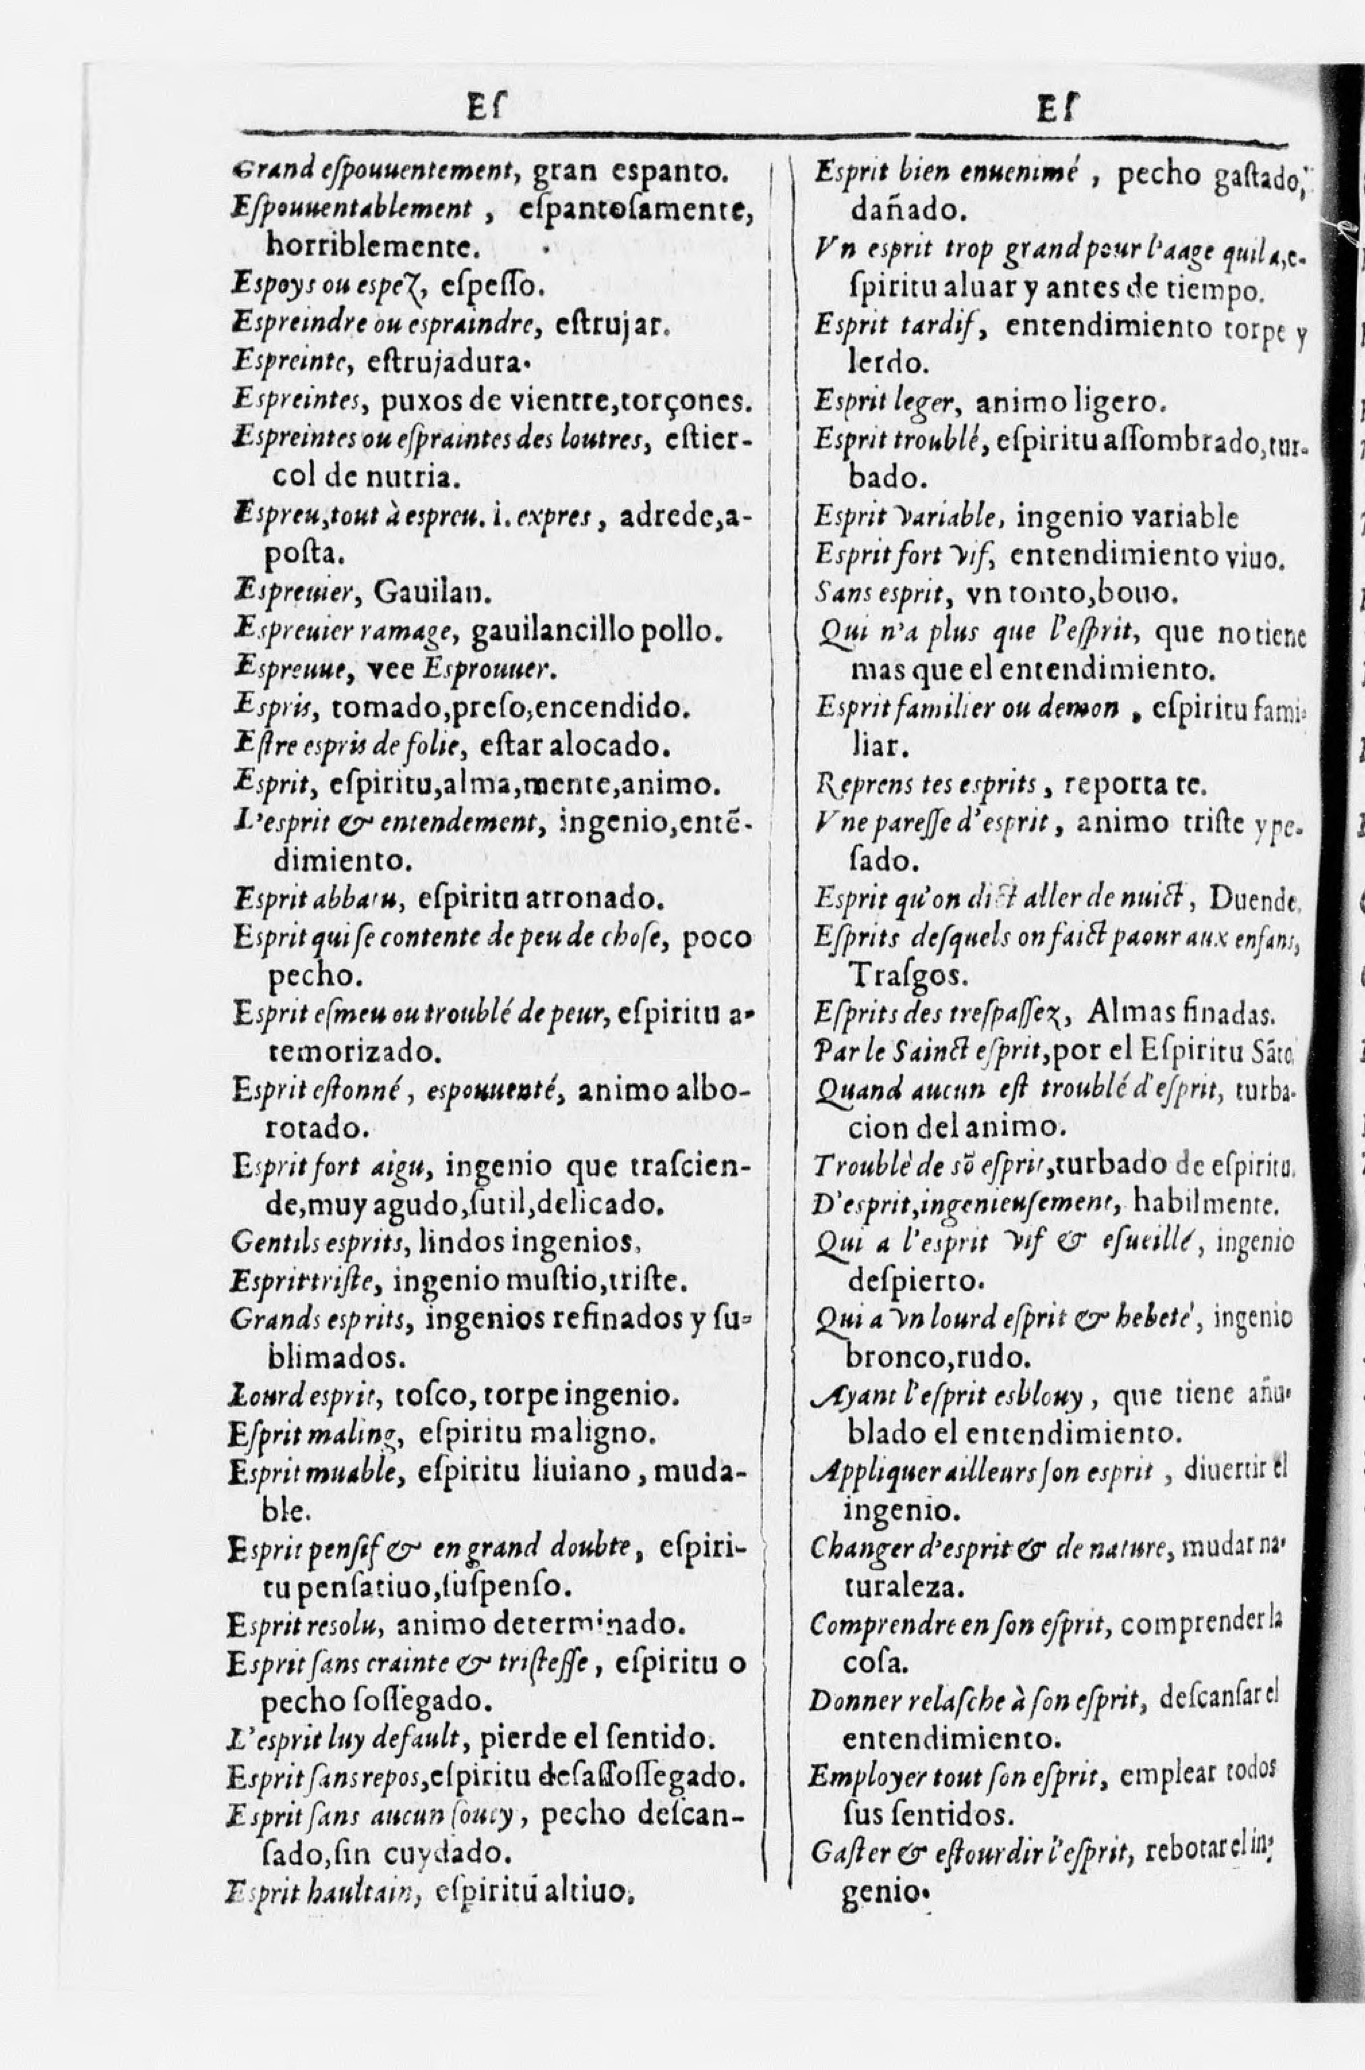 Eſ
Grand eſpouuentement, gran espanto.
Eſpouuentablement, eſpantoſamente,
horriblemente.
Espoys ou espez, eſpeſſo.
Espreindre ou espraindre, eſtrujar.
Espreinte, eſtrujadura.
Espreintes, puxos de vientre, torçones.
Espreintes ou eſpraintes des loutres, eſtier-
col de nutria.
Espreu, tout à espreu. i. expres, adrede, a-
poſta.
Espreuier, Gauilan.
Espreuier ramage, gauilancillo pollo.
Espreuue, vee Esprouuer.
Espris, tomado, preſo, encendido.
Eſtre espris de folie, eſtar alocado.
Esprit, eſpiritu, alma, mente, animo.
L'esprit & entendement, ingenio, entē-
dimiento.
Esprit abbatu, eſpiritu atronado.
Esprit qui ſe contente de peu de choſe, poco
pecho.
Esprit eſmeu ou troublé de peur, eſpiritu a-
temorizado.
Esprit eſtonné, espouuenté, animo albo-
rotado.
Esprit fort aigu, ingenio que traſcien-
de, muy agudo, ſutil, delicado.
Gentils esprits, lindos ingenios,
Esprit triſte, ingenio muſtio, triſte.
Grands esprits, ingenios refinados y ſu-
blimados.
Lourd esprit, toſco, torpe ingenio.
Eſprit maling, eſpiritu maligno.
Esprit muable, eſpiritu liuiano, muda-
ble.
Esprit penſif & en grand doubte, eſpiri-
tu penſatiuo, ſuſpenſo.
Esprit resolu, animo determinado.
Esprit ſans crainte & triſteſſe, eſpiritu o
pecho ſoſſegado.
L'esprit luy default, pierde el ſentido.
Esprit ſans repos, eſpiritu deſaſſoſſegado.
Esprit ſans aucun ſoucy, pecho deſcan-
ſado, ſin cuydado.
Esprit haultain, eſpiritu altiuo.
Eſ
Esprit bien enuenimé, pecho gaſtado,
dañado.
Vn esprit trop grand pour l'aage quil a, e-
ſpiritu aluar y antes de tiempo.
Esprit tardif, entendimiento torpe y
lerdo.
Esprit leger, animo ligero.
Esprit troublé, eſpiritu aſſombrado, tur-
bado.
Esprit variable, ingenio variable
Esprit fort vif, entendimiento viuo.
Sans esprit, vn tonto, bouo.
Qui n'a plus que l'eſprit, que no tiene
mas que el entendimiento.
Esprit familier ou demon, eſpiritu fami-
liar.
Reprens tes esprits, reporta te.
Vne pareſſe d'esprit, animo triſte y pe-
ſado.
Esprit qu'on dict aller de nuict, Duende.
Eſprits deſquels on faict paour aux enfans,
Traſgos.
Eſprits des treſpaſſez, Almas finadas.
Par le Sainct eſprit, por el Eſpiritu Sāto
Quand aucun eſt troublé d'eſprit, turba-
cion del animo.
Troublé de sō eſprit, turbado de eſpiritu.
D'esprit, ingenieuſement, habilmente.
Qui a l'esprit vif & eſueillé, ingenio
deſpierto.
Qui a vn lourd eſprit & hebeté, ingenio
bronco, rudo.
Ayant l'eſprit esblouy, que tiene añu-
blado el entendimiento.
Appliquer ailleurs ſon esprit, diuertir el
ingenio.
Changer d'esprit & de nature, mudar na-
turaleza.
Comprendre en ſon eſprit, comprender la
coſa.
Donner relaſche à ſon eſprit, deſcanſar el
entendimiento.
Employer tout ſon eſprit, emplear todos
ſus ſentidos.
Gaſter & eſtourdir l'eſprit, rebotar el in-
genio.